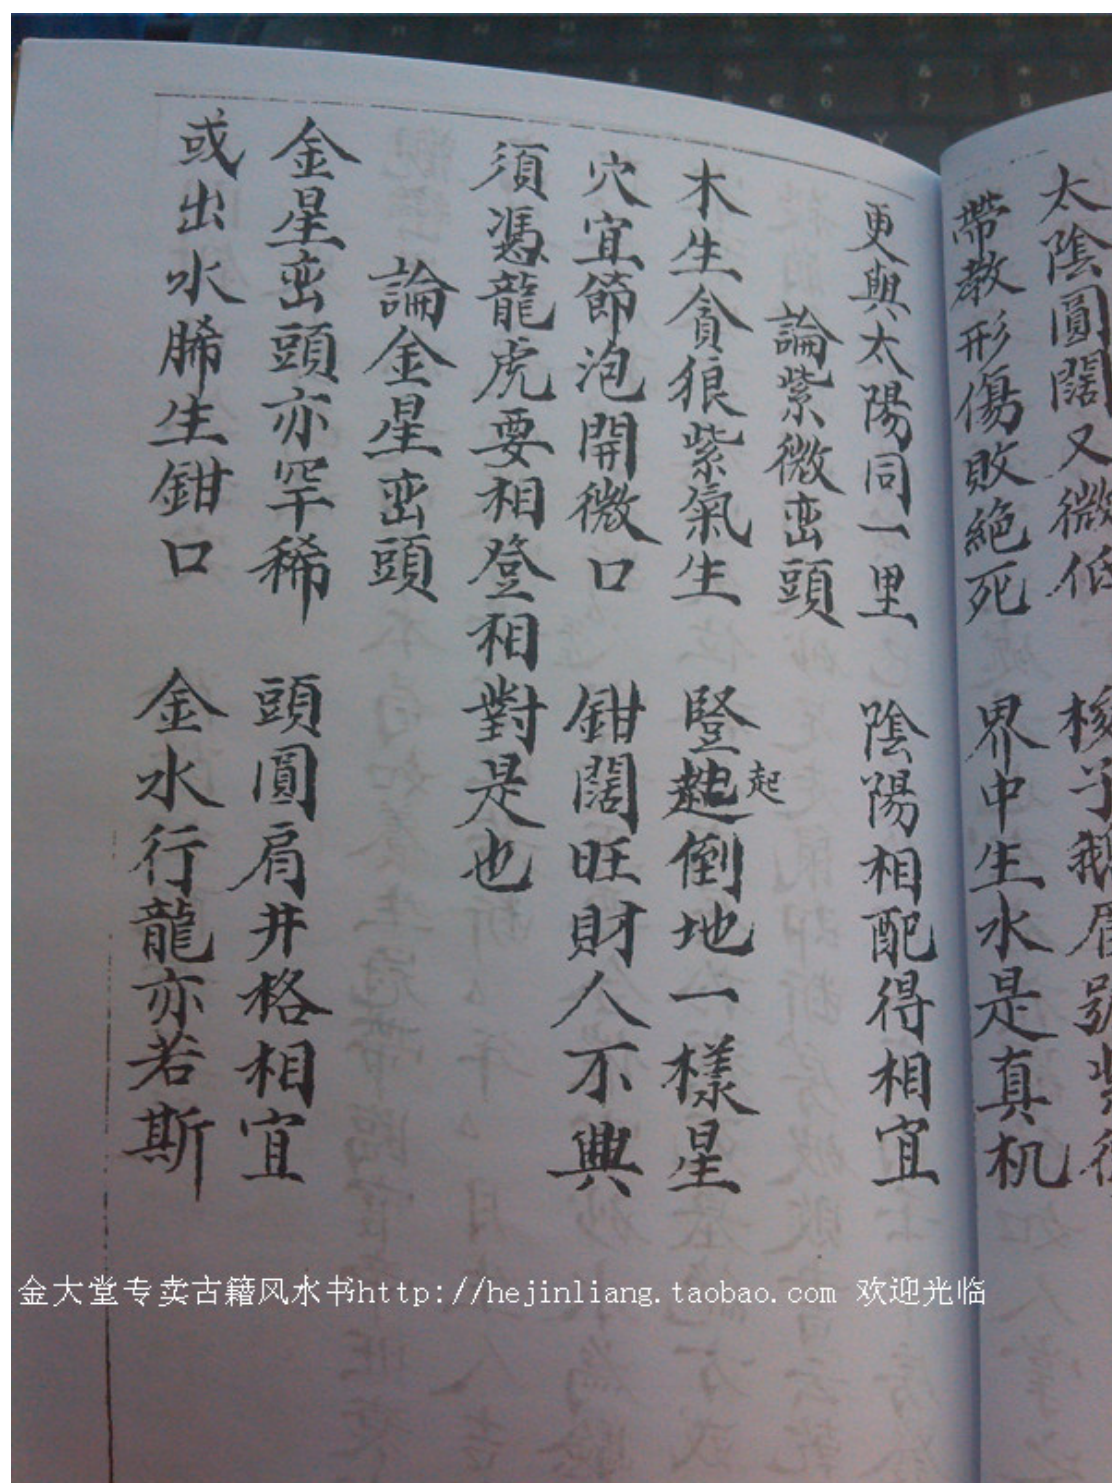 太陰圓闊又微低 梭子鵝眉號紫微
帶教形傷敗絕死 界中生水是真机
更與太陽同一里 陰陽相配得相宜
論紫微峦頭
木生貪狼紫氣生 豎起倒地一樣星
起
穴宜節泡開微口 鉗闊旺財人不興
須憑龍虎要相登相對是也
論金星峦頭
金星峦頭亦罕稀 頭圓肩井格相宜
或出水脪生鉗口 金水行龍亦若斯
金大堂专卖古籍风水书http://hejinliang.taobao.com 欢迎光临